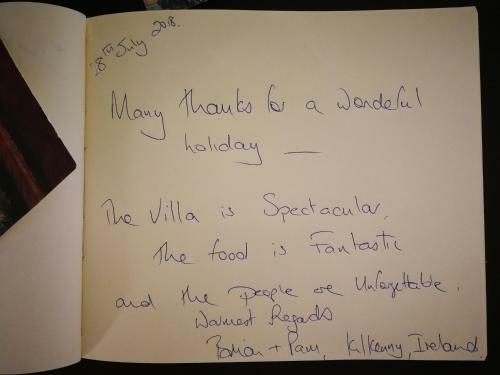 8TH July 2018.
Many thanks for a wonderful
holiday —
The Villa is Spectacular,
The food is Fantastic
and the people are Unforgettable.
Warmest Regards
Brian + Pam, Kilkenny, Ireland